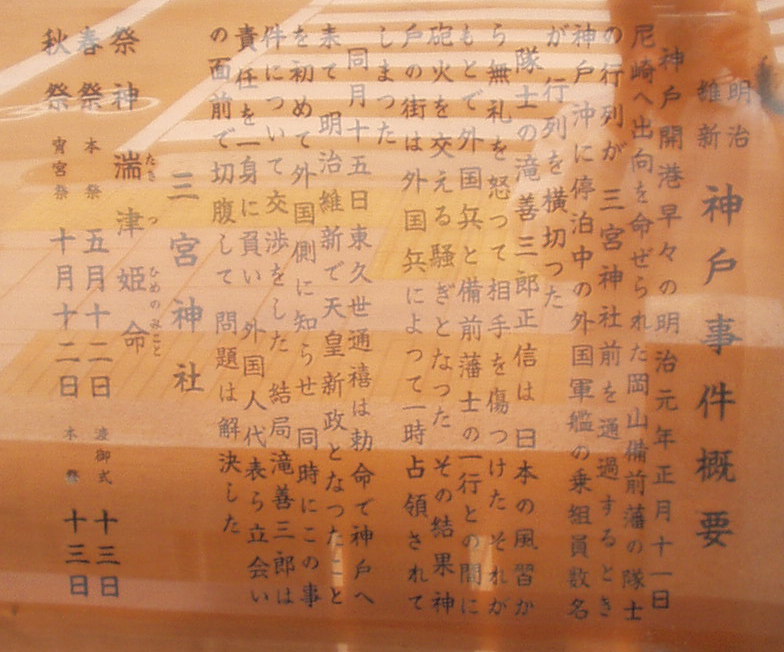 明治
維新
神戸事件概要
神戸開港早々の明治元年正月十一日
尼崎へ出向を命ぜられた岡山備前藩の隊士
の行列が 三宮神社前を通過するとき
神戸沖に停泊中の外国軍艦の乗組員数名
が 行列を横切つた
隊士の滝善三郎正信は 日本の風習か
ら無礼を怒つて相手を傷つけた それが
もとで外国兵と備前藩士の一行との間に
砲火を交える騒ぎとなつた その結果神
戸の街は外国兵によつて一時占領されて
しまつた
同月十五日東久世通禧は勅命で神戸へ
来て 明治維新で天皇新政となつたこと
を初めて外国側に知らせ 同時にこの事
件について交渉をした 結局滝善三郎は
責任を一身に負い 外国人代表ら立会い
の面前で切腹して 問題は解決した
三宮神社
祭神 湍津姫命
たき つ ひめのみこと
春祭 本祭 五月十二日 渡御式 十三日
秋祭 宵宮祭 十月十二日 本祭 十三日